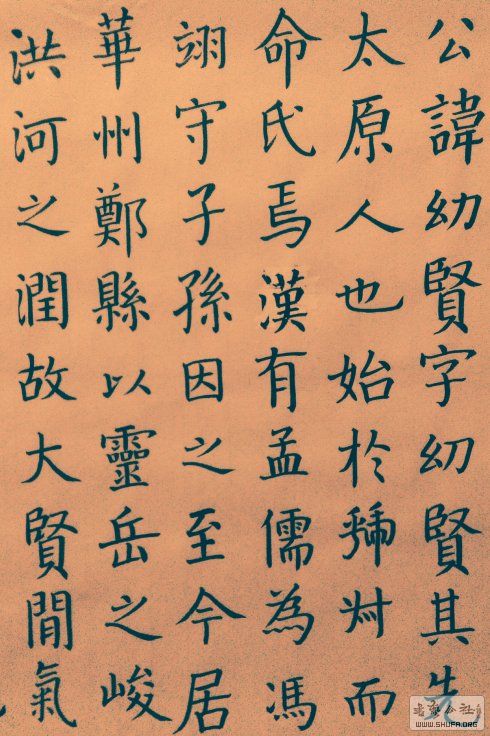 公諱幼賢字幼賢其先
太原人也始於虢叔而
命氏焉漢有孟儒為馮
翊守子孫因之至今居
華州鄭縣以靈岳之峻
洪河之潤故大賢閒氣
书法公社
WWW.SHUFA.ORG